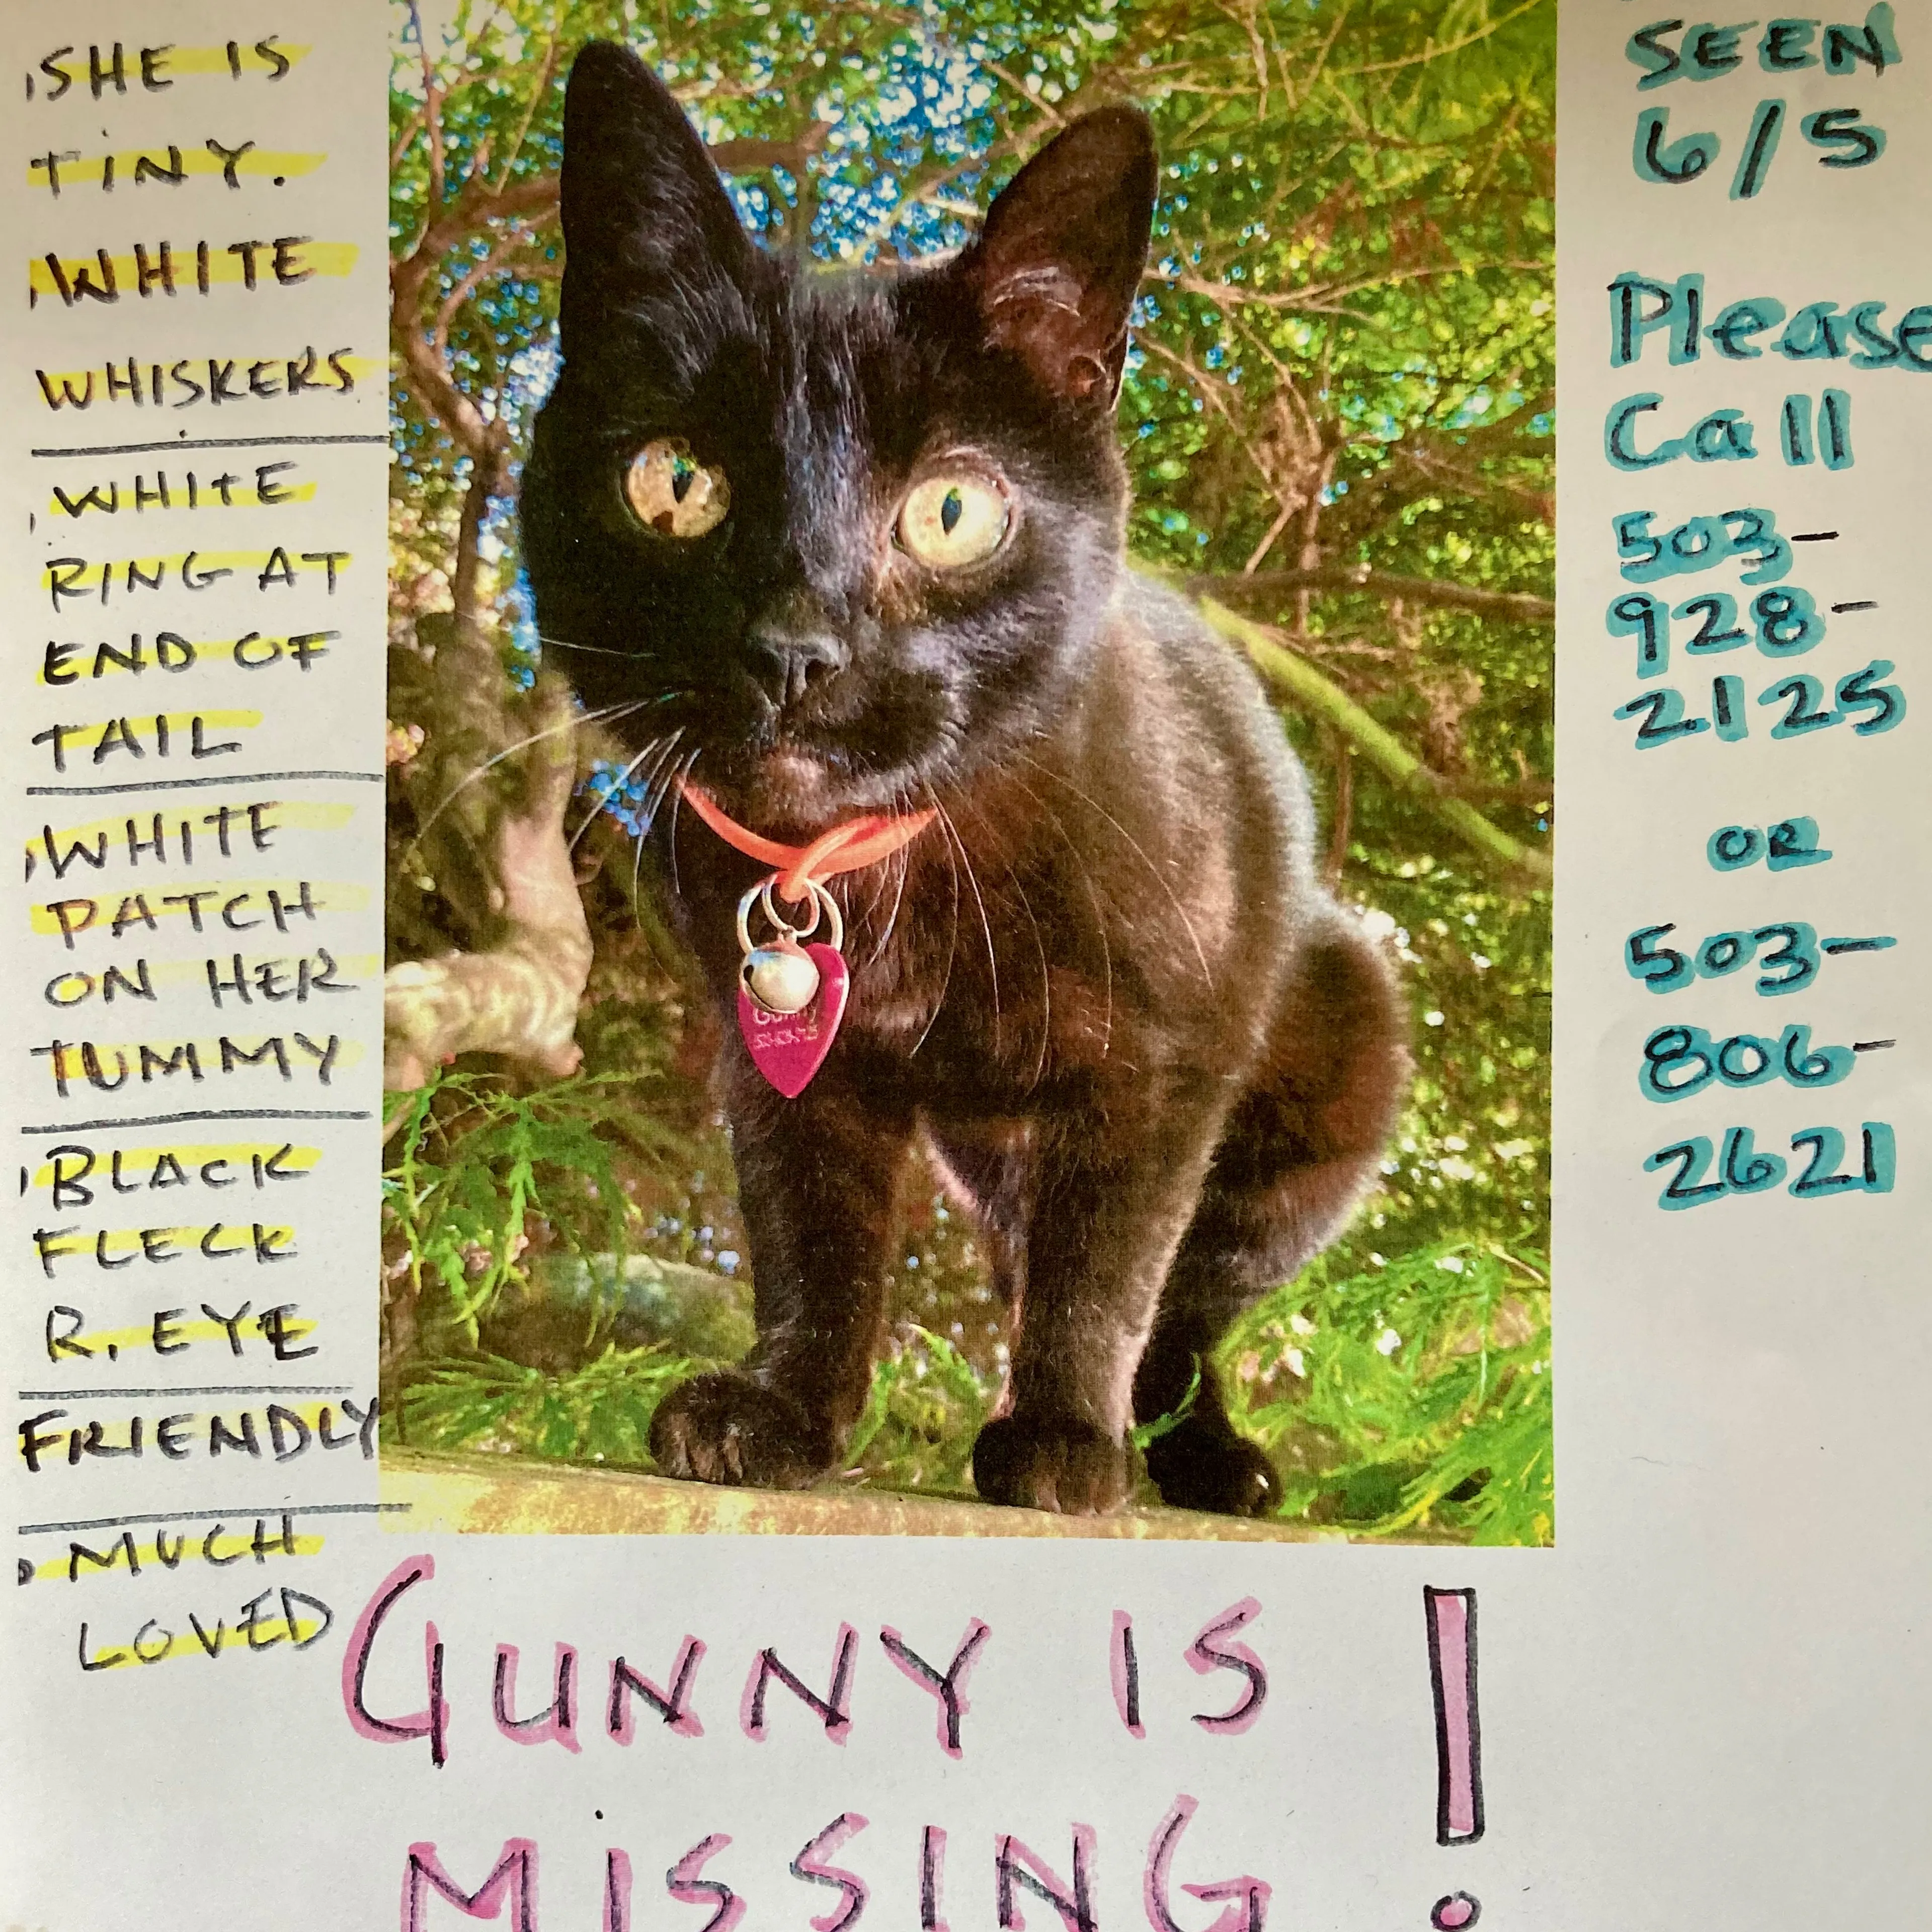 SHE IS
TINY.
WHITE
WHISKERS
WHITE
RING AT
END OF
TAIL
WHITE
PATCH
ON HER
TUMMY
BLACK
FLECK
R. EYE
FRIENDLY
MUCH
LOVED
Gunny
SEEN
6/5
Please
Call
503-
928-
2125
OR
503-
806-
2621
GUNNY IS
MISSING!